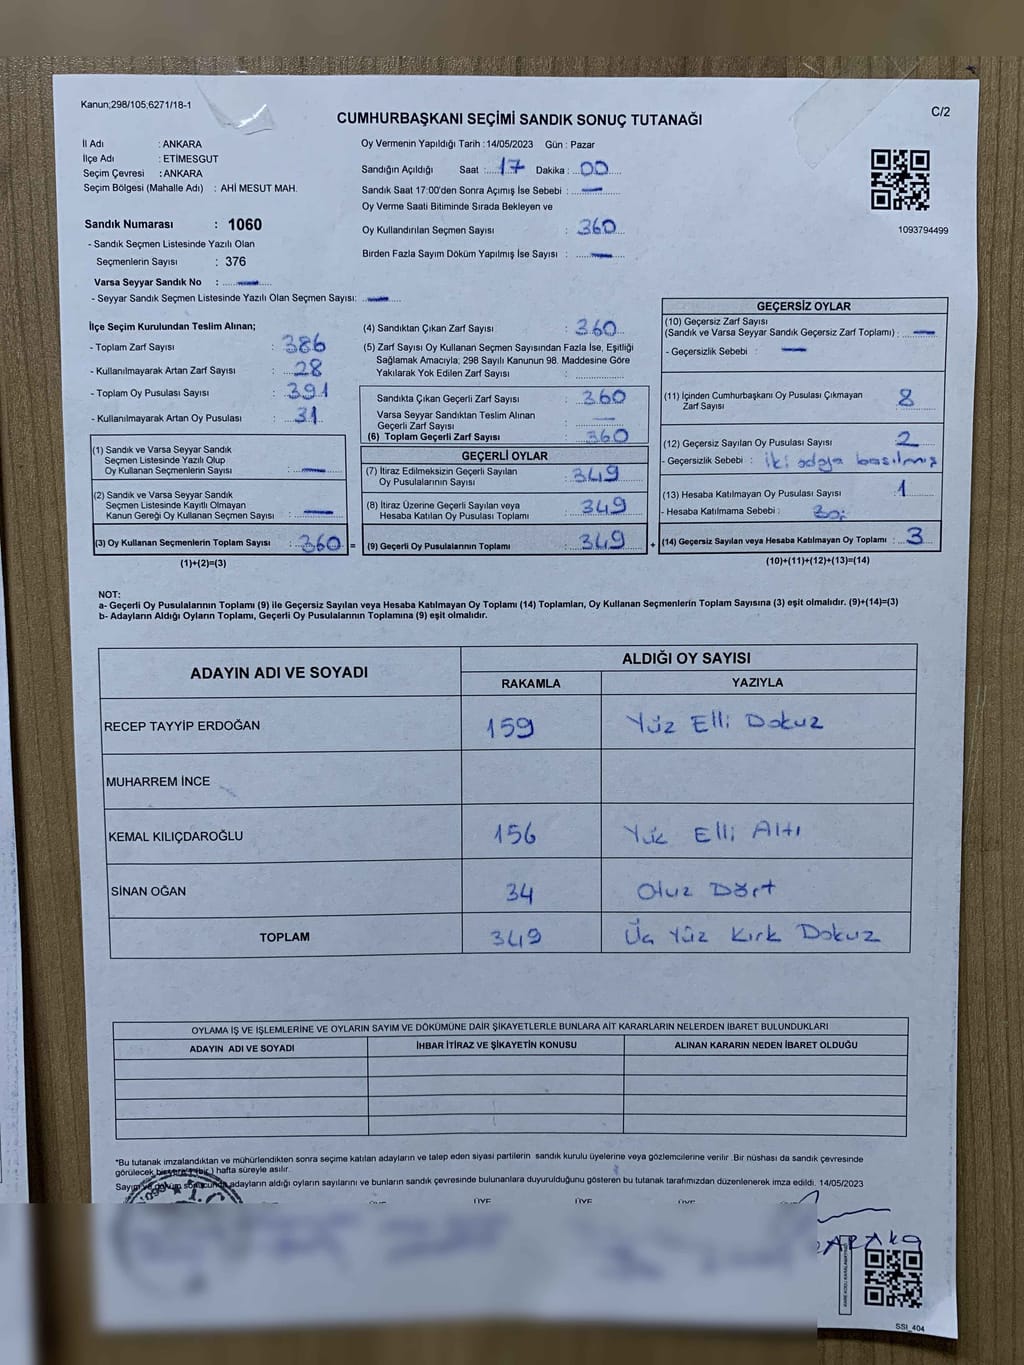 Kanun;298/105;6271/18-1
C/2
CUMHURBAŞKANI SEÇİMİ SANDIK SONUÇ TUTANAĞI
İl Adı : ANKARA
İlçe Adı : ETİMESGUT
Seçim Çevresi : ANKARA
Seçim Bölgesi (Mahalle Adı) : AHİ MESUT MAH.
Sandık Numarası : 1060
- Sandık Seçmen Listesinde Yazılı Olan
Seçmenlerin Sayısı : 376
Varsa Seyyar Sandık No : —
- Seyyar Sandık Seçmen Listesinde Yazılı Olan Seçmen Sayısı: —
Oy Vermenin Yapıldığı Tarih : 14/05/2023 Gün : Pazar
Sandığın Açıldığı Saat : 17 Dakika : 00
Sandık Saat 17:00'den Sonra Açımış İse Sebebi : —
Oy Verme Saati Bitiminde Sırada Bekleyen ve
Oy Kullandırılan Seçmen Sayısı : 360
Birden Fazla Sayım Döküm Yapılmış İse Sayısı : —
1093794499
İlçe Seçim Kurulundan Teslim Alınan;
- Toplam Zarf Sayısı : 386
- Kullanılmayarak Artan Zarf Sayısı : 28
- Toplam Oy Pusulası Sayısı : 391
- Kullanılmayarak Artan Oy Pusulası : 31
(1) Sandık ve Varsa Seyyar Sandık
Seçmen Listesinde Yazılı Olup
Oy Kullanan Seçmenlerin Sayısı : —
(2) Sandık ve Varsa Seyyar Sandık
Seçmen Listesinde Kayıtlı Olmayan
Kanun Gereği Oy Kullanan Seçmen Sayısı : —
(3) Oy Kullanan Seçmenlerin Toplam Sayısı : 360 =
(1)+(2)=(3)
(4) Sandıktan Çıkan Zarf Sayısı : 360
(5) Zarf Sayısı Oy Kullanan Seçmen Sayısından Fazla İse, Eşitliği
Sağlamak Amacıyla; 298 Sayılı Kanunun 98. Maddesine Göre
Yakılarak Yok Edilen Zarf Sayısı :
Sandıkta Çıkan Geçerli Zarf Sayısı : 360
Varsa Seyyar Sandıktan Teslim Alınan
Geçerli Zarf Sayısı : —
(6) Toplam Geçerli Zarf Sayısı : 360
GEÇERLİ OYLAR
(7) İtiraz Edilmeksizin Geçerli Sayılan
Oy Pusulalarının Sayısı : 349
(8) İtiraz Üzerine Geçerli Sayılan veya
Hesaba Katılan Oy Pusulası Toplamı : 349
(9) Geçerli Oy Pusulalarının Toplamı : 349 +
GEÇERSİZ OYLAR
(10) Geçersiz Zarf Sayısı
(Sandık ve Varsa Seyyar Sandık Geçersiz Zarf Toplamı) : —
- Geçersizlik Sebebi : —
(11) İçinden Cumhurbaşkanı Oy Pusulası Çıkmayan
Zarf Sayısı : 8
(12) Geçersiz Sayılan Oy Pusulası Sayısı : 2
- Geçersizlik Sebebi : iki adaya basılmış
(13) Hesaba Katılmayan Oy Pusulası Sayısı : 1
- Hesaba Katılmama Sebebi :
(14) Geçersiz Sayılan veya Hesaba Katılmayan Oy Toplamı : 3
(10)+(11)+(12)+(13)=(14)
NOT:
a- Geçerli Oy Pusulalarının Toplamı (9) ile Geçersiz Sayılan veya Hesaba Katılmayan Oy Toplamı (14) Toplamları, Oy Kullanan Seçmenlerin Toplam Sayısına (3) eşit olmalıdır. (9)+(14)=(3)
b- Adayların Aldığı Oyların Toplamı, Geçerli Oy Pusulalarının Toplamına (9) eşit olmalıdır.
ADAYIN ADI VE SOYADI
ALDIĞI OY SAYISI
RAKAMLA YAZIYLA
RECEP TAYYİP ERDOĞAN 159 Yüz Elli Dokuz
MUHARREM İNCE
KEMAL KILIÇDAROĞLU 156 Yüz Elli Altı
SİNAN OĞAN 34 Otuz Dört
TOPLAM 349 Üç Yüz Kırk Dokuz
OYLAMA İŞ VE İŞLEMLERİNE VE OYLARIN SAYIM VE DÖKÜMÜNE DAİR ŞİKAYETLERLE BUNLARA AİT KARARLARIN NELERDEN İBARET BULUNDUKLARI
ADAYIN ADI VE SOYADI İHBAR İTİRAZ VE ŞİKAYETİN KONUSU ALINAN KARARIN NEDEN İBARET OLDUĞU
*Bu tutanak imzalandıktan ve mühürlendikten sonra seçime katılan adayların ve talep eden siyasi partilerin sandık kurulu üyelerine veya gözlemcilerine verilir .Bir nüshası da sandık çevresinde
görülecek bir yere 1 (bir ) hafta süreyle asılır.
Sayım ve döküm sonucunda adayların aldığı oyların sayılarını ve bunların sandık çevresinde bulunanlara duyurulduğunu gösteren bu tutanak tarafımızdan düzenlenerek imza edildi. 14/05/2023
ÜYE ÜYE ÜYE
SSI_404